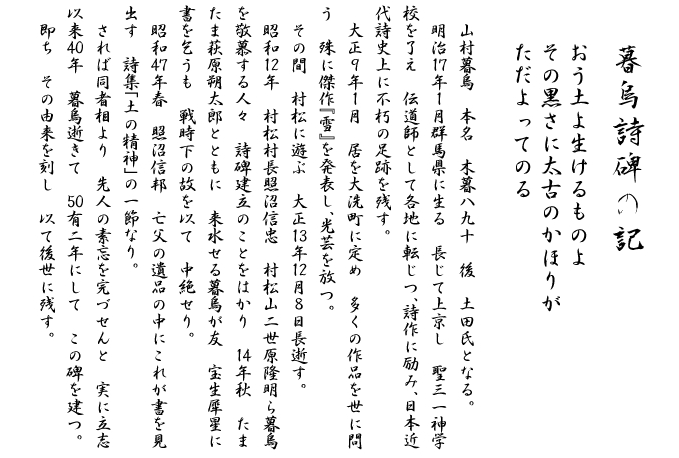 暮鳥詩碑の記
おう土よ生けるものよ
その黒さに太古のかほりが
ただよってのる
山村暮鳥　本名　木暮八九十　後　土田氏となる。
明治17年1月群馬県に生る　長じて上京し　聖三一神学
校を了え　伝道師として各地に転じつ、詩作に励み、日本近
代詩史上に不朽の足跡を残す。
大正9年1月　居を大洗町に定め　多くの作品を世に問
う　殊に傑作『雲』を発表し、光芸を放つ。
その間　村松に遊ぶ　大正13年12月8日長逝す。
昭和12年　村松村長照沼信忠　村松山二世原隆明ら暮鳥
を敬慕する人々　詩碑建立のことをはかり　14年秋　たま
たま萩原朔太郎とともに　来水せる暮鳥が友　宝生犀星に
書を乞うも　戦時下の故を以て　中絶せり。
昭和47年春　照沼信邦　亡父の遺品の中にこれが書を見
出す　詩集「土の精神」の一節なり。
されば同者相より　先人の素忘を完づせんと　実に立志
以来40年　暮鳥逝きて　50有二年にして　この碑を建つ。
即ち　その由来を刻し　以て後世に残す。